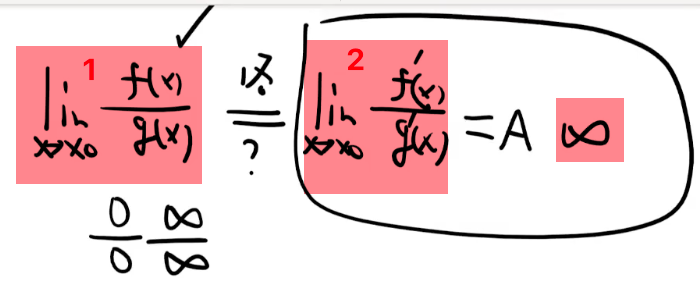 1 lim x→x₀ f(x)/g(x) 洛 =? 2 lim x→x₀ f′(x)/g′(x) = A ∞
0/0 ∞/∞